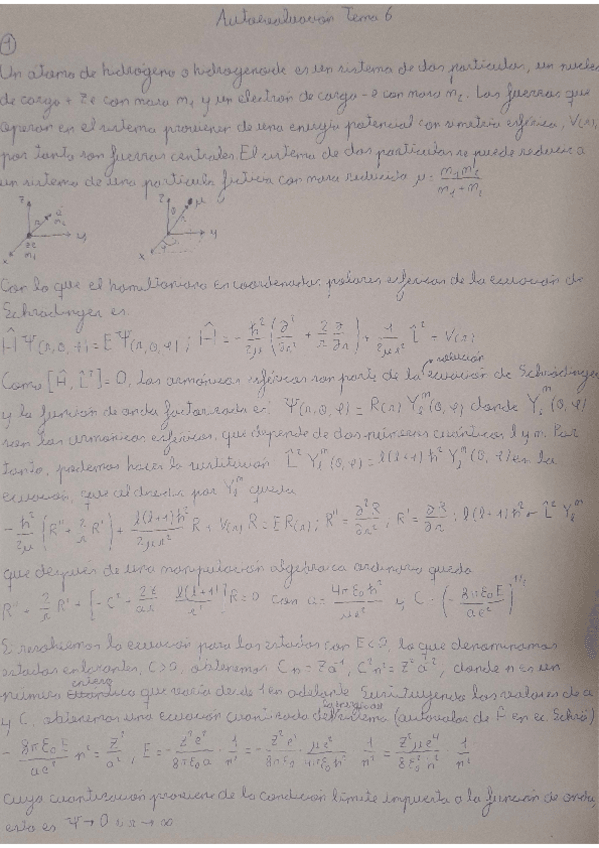 Autoevaluación Tema 6
①
Un átomo de hidrógeno o hidrogenoide es un sistema de dos partículas, un núcleo
de carga + Ze con masa m₁ y un electrón de carga -e con masa m₂. Las fuerzas que
operan en el sistema provienen de una energía potencial con simetría esférica, V(r),
por tanto son fuerzas centrales. El sistema de dos partículas se puede reducir a
un sistema de una partícula ficticia con masa reducida μ = m₁m₂/m₁+m₂
z e m₂ r y x Ze m₁
z θ μ r y x φ
Con lo que el hamiltoniano en coordenadas polares esféricas de la ecuación de
Schrödinger es:
Ĥ Ψ(r,θ,φ) = E Ψ(r,θ,φ) ; Ĥ = - ħ²/2μ (∂²/∂r² + 2/r ∂/∂r) + 1/2μr² L̂² + V(r)
Como [Ĥ, L̂²] = 0, los armónicos esféricos son parte de la solución ecuación de Schrödinger
y la función de onda factorizada es: Ψ(r,θ,φ) = R(r) Yₗᵐ(θ,φ) donde Yₗᵐ(θ,φ)
son los armónicos esféricos, que depende de dos números cuánticos l y m. Por
tanto, podemos hacer la sustitución L̂² Yₗᵐ(θ,φ) = l(l+1) ħ² Yₗᵐ(θ,φ) en la
ecuación, que al dividir por Yₗᵐ queda
- ħ²/2μ (R'' + 2/r R') + l(l+1)ħ²/2μr² R + V(r) R = E R(r) ; R'' = ∂²R/∂r², R' = ∂R/∂r ; l(l+1) ħ² L̂² Yₗᵐ
que después de una manipulación algebraica ordinaria queda
R'' + 2/r R' + [-C² + 2Z/ar - l(l+1)/r²] R = 0 con a = 4πε₀ħ²/μe² y C = (- 8πε₀E/ae²)^1/2
Si resolvemos la ecuación para los estados con E<0, lo que denominamos
estados enlazantes, C>0, obtenemos Cn = Za⁻¹, C²n² = Z²a⁻², donde n es un
número entero que varía desde 1 en adelante. Sustituyendo los valores de a
y C, obtenemos una ecuación cuantizada del sistema (autovalor de E en ec. Schrö)
- 8πε₀E/ae² n² = Z²/a² , E = - Z²e²/8πε₀a · 1/n² = - Z²e²/8πε₀ · μe²/4πε₀ħ² · 1/n² = Z²μe⁴/8ε₀²h² · 1/n²
cuya cuantización proviene de la condición límite impuesta a la función de onda,
esto es Ψ→0 si r→∞